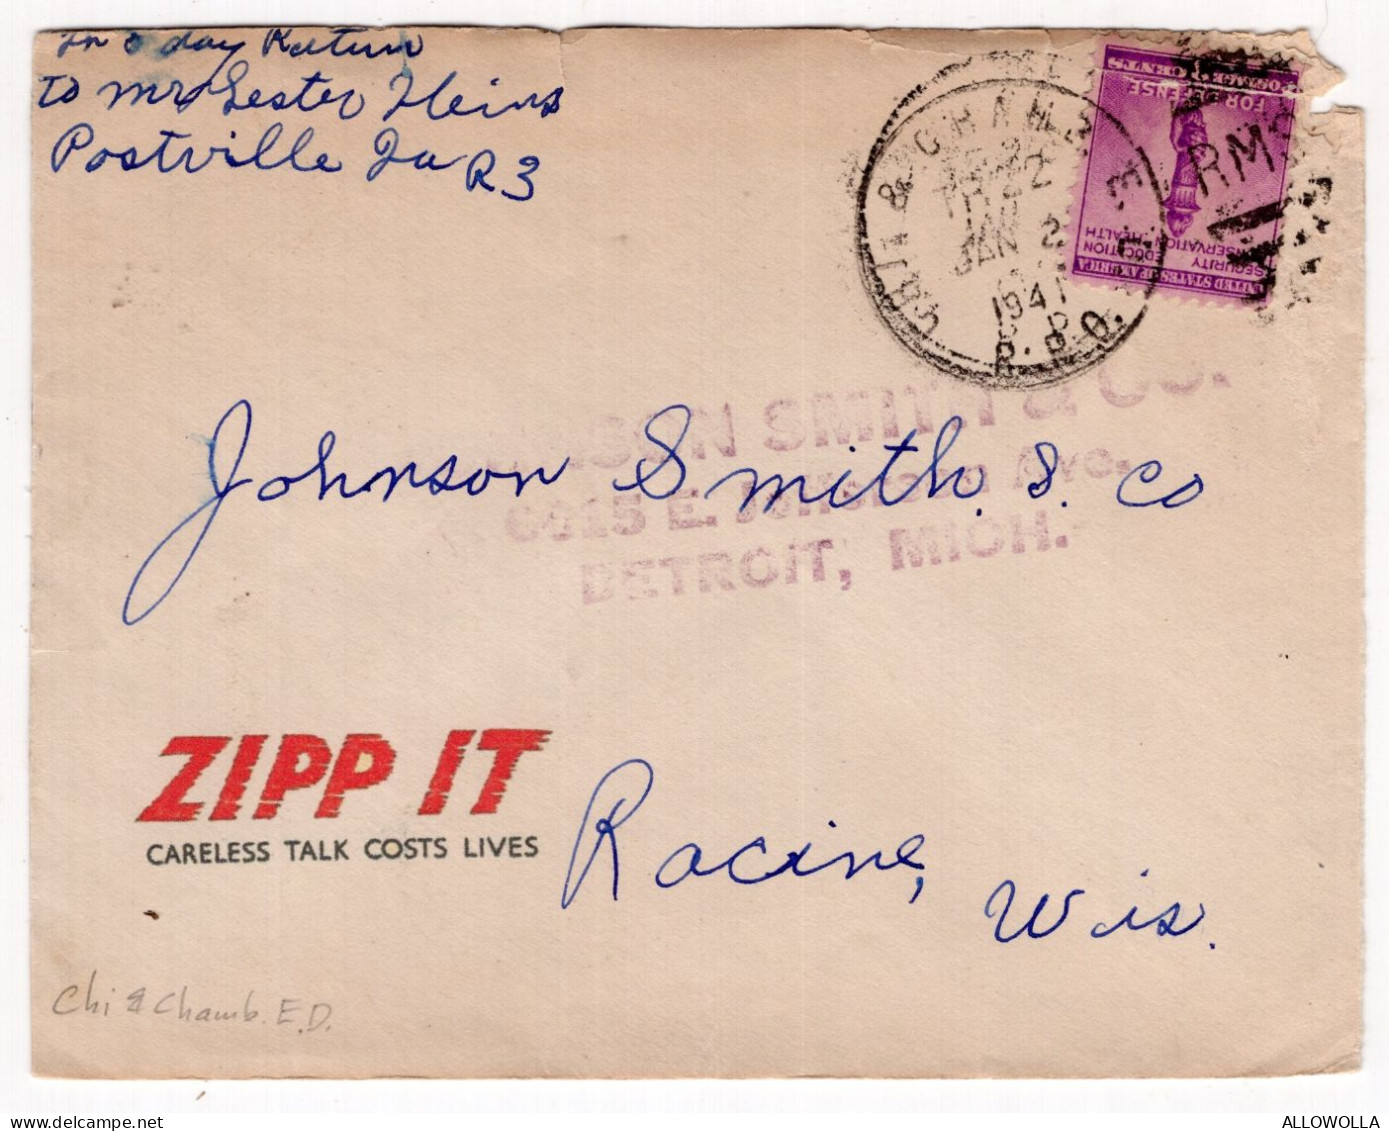 In 5 day Return
to Mr Lester Heins
Postville Ia R3
CHI. & CHAMB.
E.D.
TR. 22
JAN 2
1941
R.P.O.
RMS
POSTAGE 3 CENTS
FOR DEFENSE
SECURITY
EDUCATION
CONSERVATION HEALTH
UNITED STATES OF AMERICA
JOHNSON SMITH & CO.
6615 E. Jefferson Ave.
DETROIT, MICH.
Johnson Smith. & Co
ZIPP IT
CARELESS TALK COSTS LIVES
Racine,
Wis.
Chi & Chamb. E.D.
delcampe.net
ALLOWOLLA